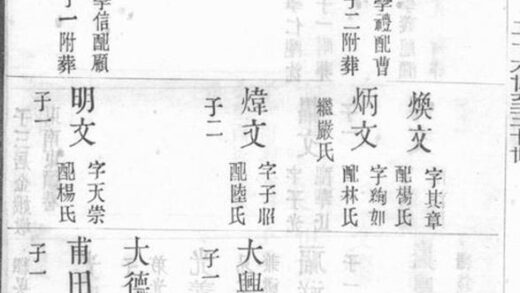 二十六世至三十世
學禮配曹
子二附葬
學信配顧
子一附葬
煥文
字其章
配楊氏
炳文
字絢如
配林氏
繼嚴氏
煒文
字子昭
配陸氏
子二
明文
字天崇
配楊氏
子一
大興
子一
大德
甫田
子一